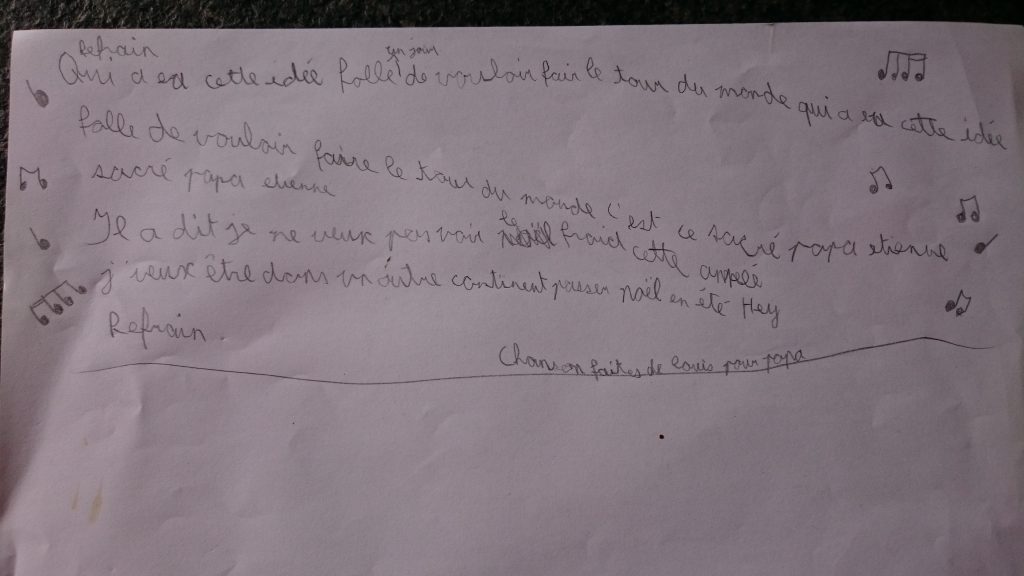 Refrain
un jour
Qui a eu cette idée folle de vouloir fair le tour du monde qui a eu cette idée
folle de vouloir faire le tour du monde c'est ce sacré papa etienne
sacré papa etienne
Il a dit je ne veux pas voir le froid cette année
j'veux être dans un autre continent passer noël en été Hey
Refrain.
Chanson faites de Louis pour papa